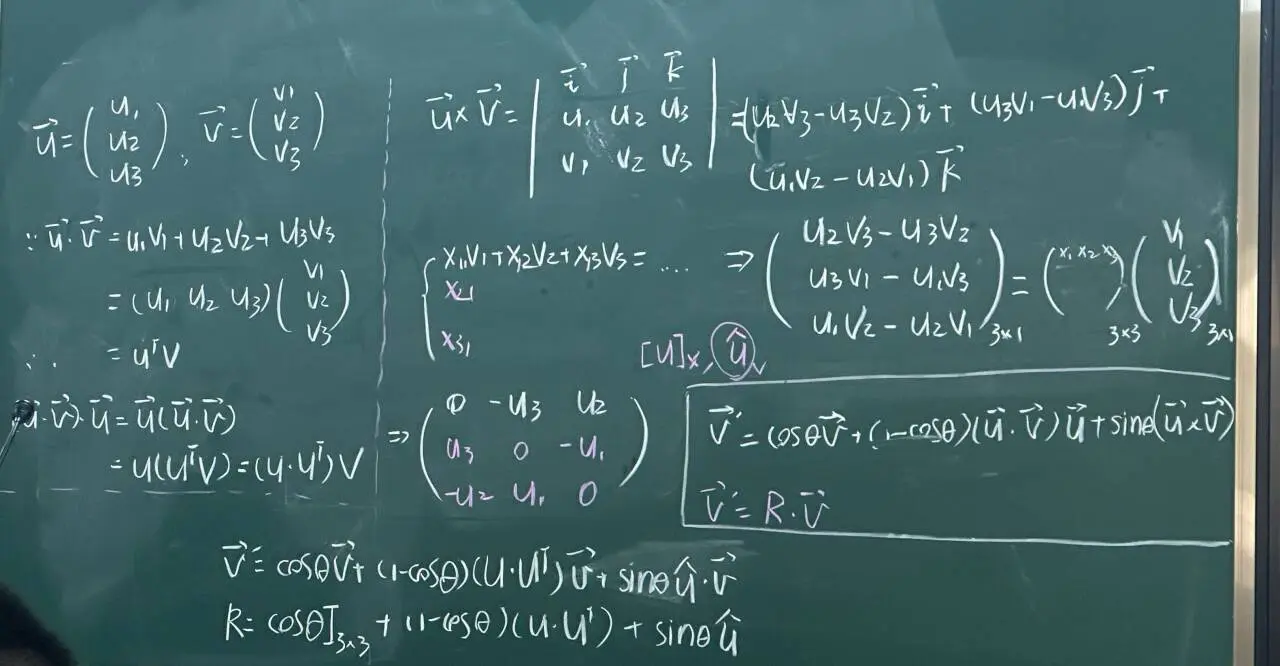 u⃗ = (u₁ u₂ u₃), v⃗ = (v₁ v₂ v₃)
∵ u⃗·v⃗ = u₁v₁+u₂v₂+u₃v₃
= (u₁ u₂ u₃)(v₁ v₂ v₃)
∴ = uᵀv
u⃗·v⃗)·u⃗ = u⃗(u⃗·v⃗)
= u(uᵀv) = (u·uᵀ)v
u⃗×v⃗ = | i⃗ j⃗ k⃗
u₁ u₂ u₃
v₁ v₂ v₃ | = (u₂v₃-u₃v₂)i⃗ + (u₃v₁-u₁v₃)j⃗ +
(u₁v₂-u₂v₁)k⃗
{ x₁₁v₁+x₁₂v₂+x₁₃v₃ = ....
x₂₁
x₃₁
⇒ ( u₂v₃-u₃v₂
u₃v₁-u₁v₃
u₁v₂-u₂v₁ )₃ₓ₁ = (x₁ x₂ x₃)₃ₓ₃ (v₁ v₂ v₃)₃ₓ₁
[u]ₓ, û
⇒ ( 0 -u₃ u₂
u₃ 0 -u₁
-u₂ u₁ 0 )
v⃗' = cosθv⃗+(1-cosθ)(u⃗·v⃗)u⃗+sinθ(u⃗×v⃗)
v⃗' = R·v⃗
v⃗' = cosθv⃗+(1-cosθ)(u·uᵀ)v⃗+sinθû·v⃗
R = cosθI₃ₓ₃+(1-cosθ)(u·uᵀ)+sinθû